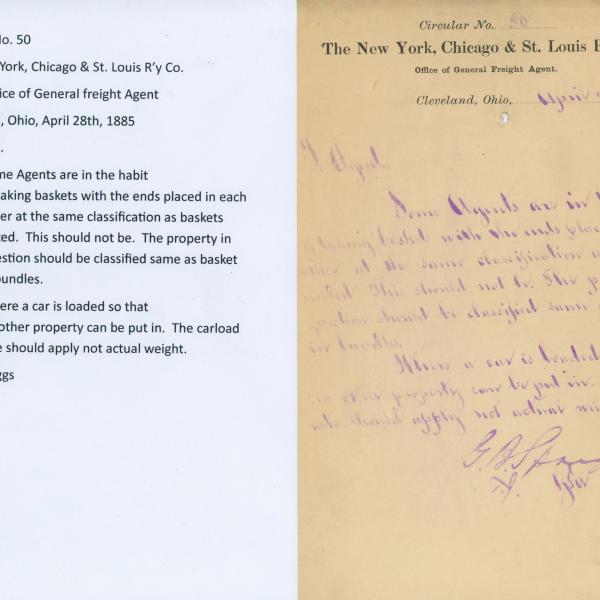 o. 50
York, Chicago & St. Louis R'y Co.
ice of General freight Agent
, Ohio, April 28th, 1885
.
me Agents are in the habit
aking baskets with the ends placed in each
er at the same classification as baskets
ted. This should not be. The property in
estion should be classified same as basket
bundles.
ere a car is loaded so that
other property can be put in. The carload
e should apply not actual weight.
ggs
Circular No. 50
The New York, Chicago & St. Louis R
Office of General Freight Agent.
Cleveland, Ohio, April
Agent.
Some Agents are in
taking basket with the ends plac
other at the same classification
nested This should not be. The p
question should be classified same
in bundles.
Where a car is loaded
no other property can be put in.
rate should apply not actual wei
G. B. Spr